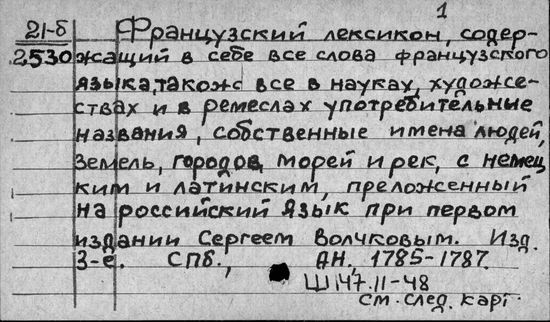 1
21-б Французский лексикон, содер-
2530 жащий в себе все слова французского
языка, також все в науках, художе-
ствах и в ремеслах употребительные
названия, собственные имена людей,
земель, городов, морей и рек, с немец
ким и латинским, преложенный
на российский язык при первом
издании Сергеем Волчковым. Изд.
3-е. СПб., АН, 1785-1787.
Ш 147.11-48
см. след. карт.